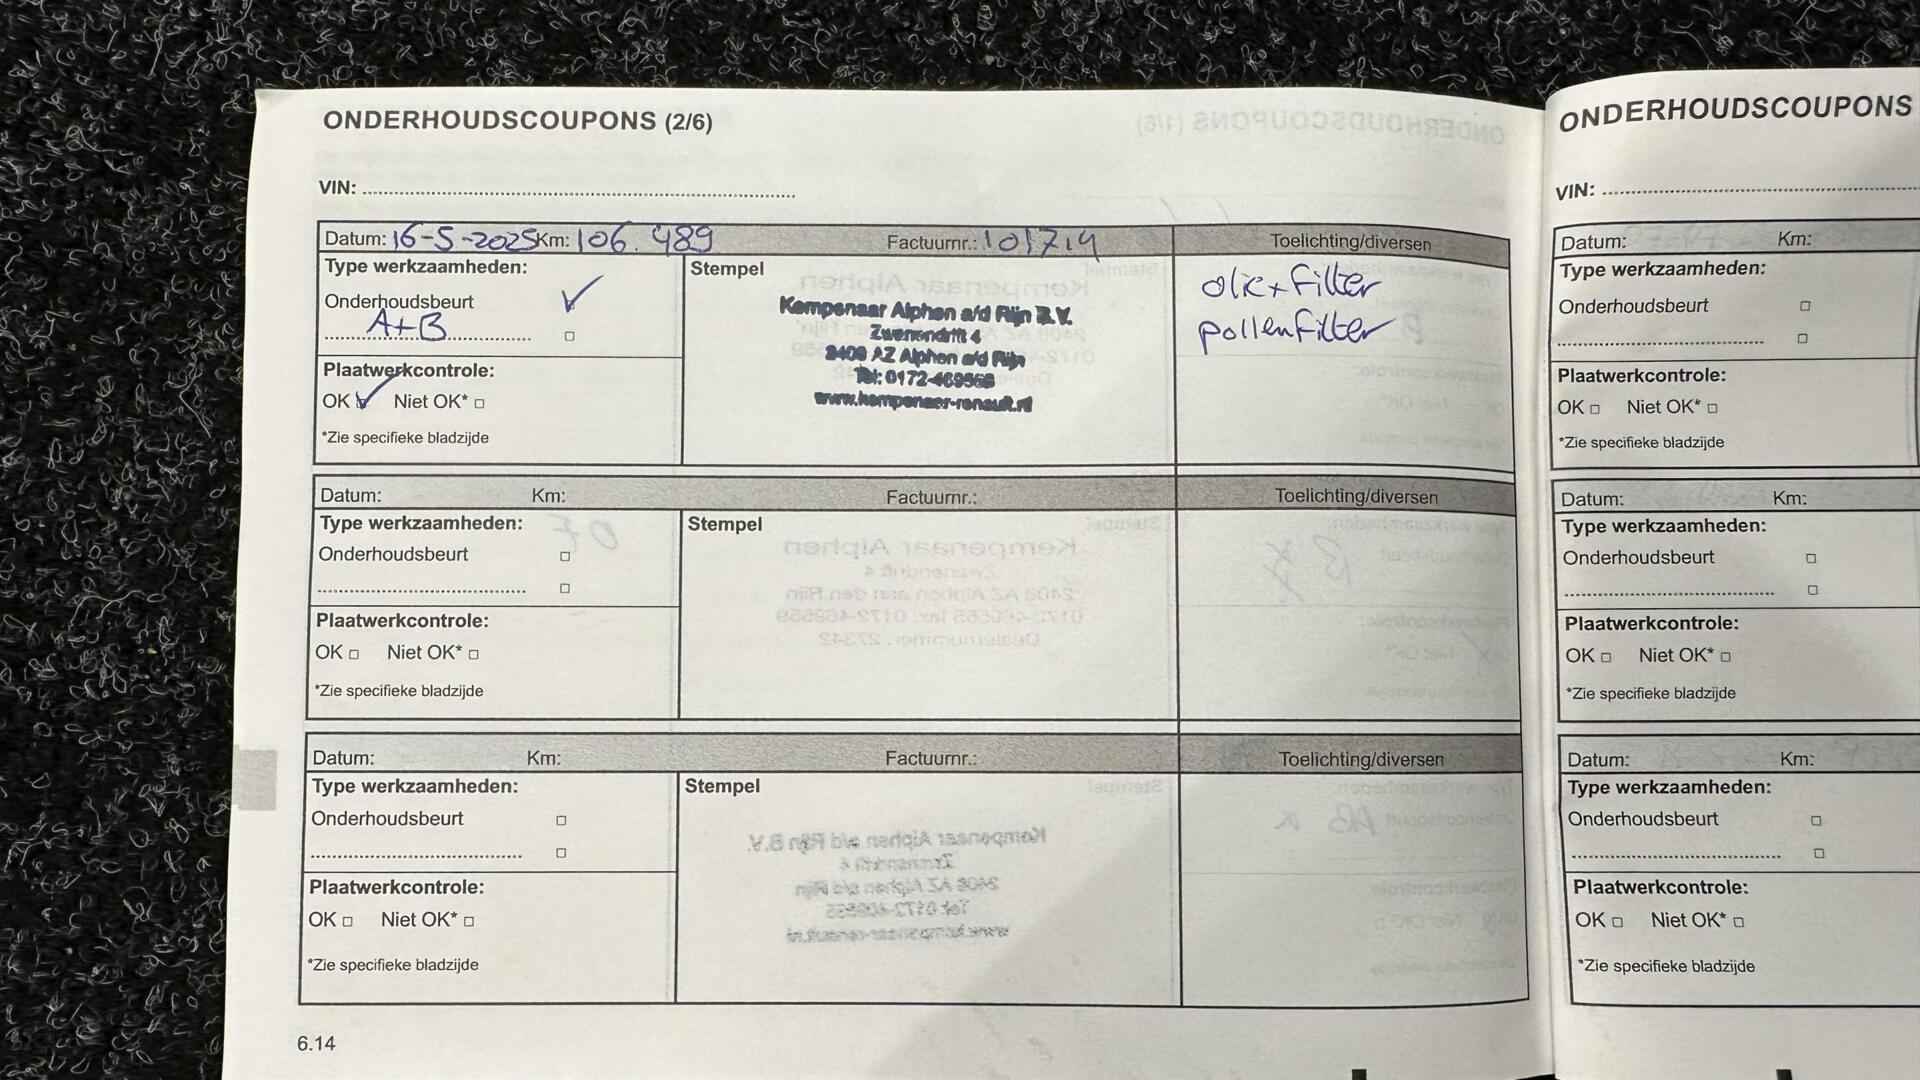 ONDERHOUDSCOUPONS (2/6)
VIN:
Datum: 16-5-2025 Km: 106.489 Factuurnr.: 101719 Toelichting/diversen
Type werkzaamheden:
Onderhoudsbeurt
A+B
Plaatwerkcontrole:
OK Niet OK*
*Zie specifieke bladzijde
Stempel
Kempenaar Alphen a/d Rijn B.V.
Zwenendrift 4
2409 AZ Alphen a/d Rijn
Tel: 0172-469555
www.kempenaar-renault.nl
olie+filter
pollenfilter
Datum: Km: Factuurnr.: Toelichting/diversen
Type werkzaamheden:
Onderhoudsbeurt
Plaatwerkcontrole:
OK Niet OK*
*Zie specifieke bladzijde
Stempel
Datum: Km: Factuurnr.: Toelichting/diversen
Type werkzaamheden:
Onderhoudsbeurt
Plaatwerkcontrole:
OK Niet OK*
*Zie specifieke bladzijde
Stempel
6.14
ONDERHOUDSCOUPONS
VIN:
Datum: Km:
Type werkzaamheden:
Onderhoudsbeurt
Plaatwerkcontrole:
OK Niet OK*
*Zie specifieke bladzijde
Datum: Km:
Type werkzaamheden:
Onderhoudsbeurt
Plaatwerkcontrole:
OK Niet OK*
*Zie specifieke bladzijde
Datum: Km:
Type werkzaamheden:
Onderhoudsbeurt
Plaatwerkcontrole:
OK Niet OK*
*Zie specifieke bladzijde